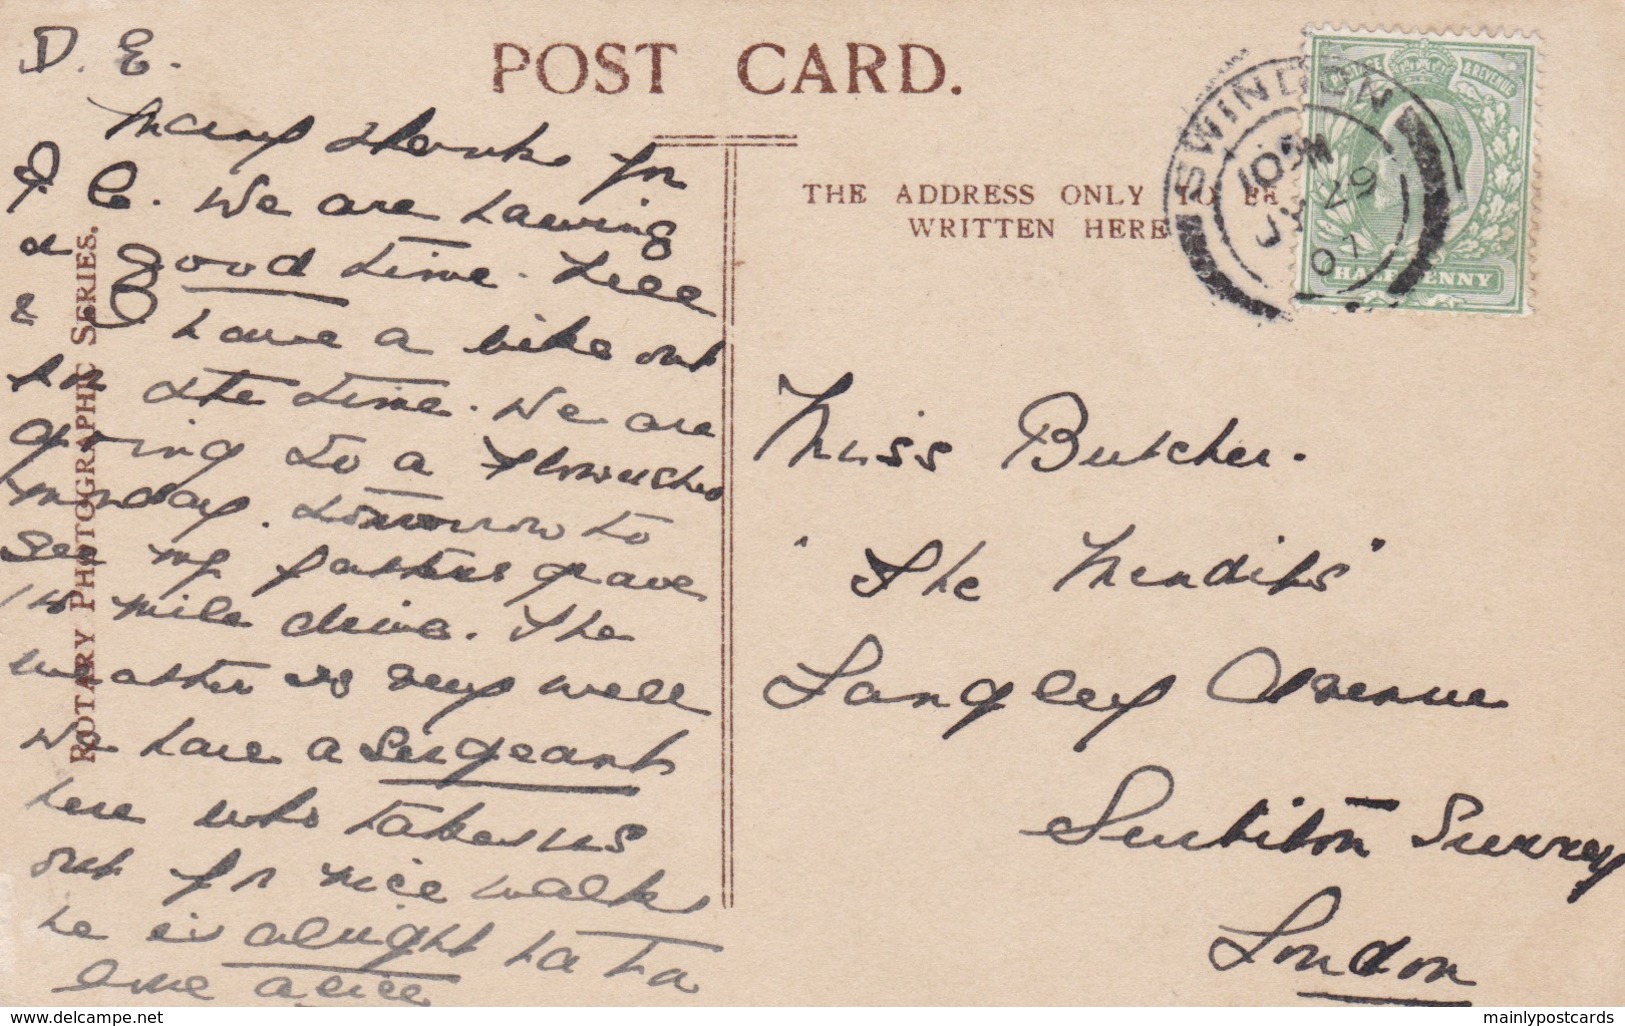 D. E.
Many thanks for
P. C. We are having
a good time. Nell
& I have a bike out
for the time. We are
going to a Flowershow
monday. tomorrow to
See my fathers grave
mile drive. The
weather is very well
We have a Sergeant
here who takes us
out for nice walks
he is alright ta ta
love Alice
POST CARD.
THE ADDRESS ONLY TO BE
WRITTEN HERE
ROTARY PHOTOGRAPHIC SERIES.
SWINDON
JY 29
07
POSTAGE & REVENUE
HALFPENNY
Miss Butcher.
"The Mendips"
Langley Avenue
Surbiton Surrey
London
www.delcampe.net
mainlypostcards